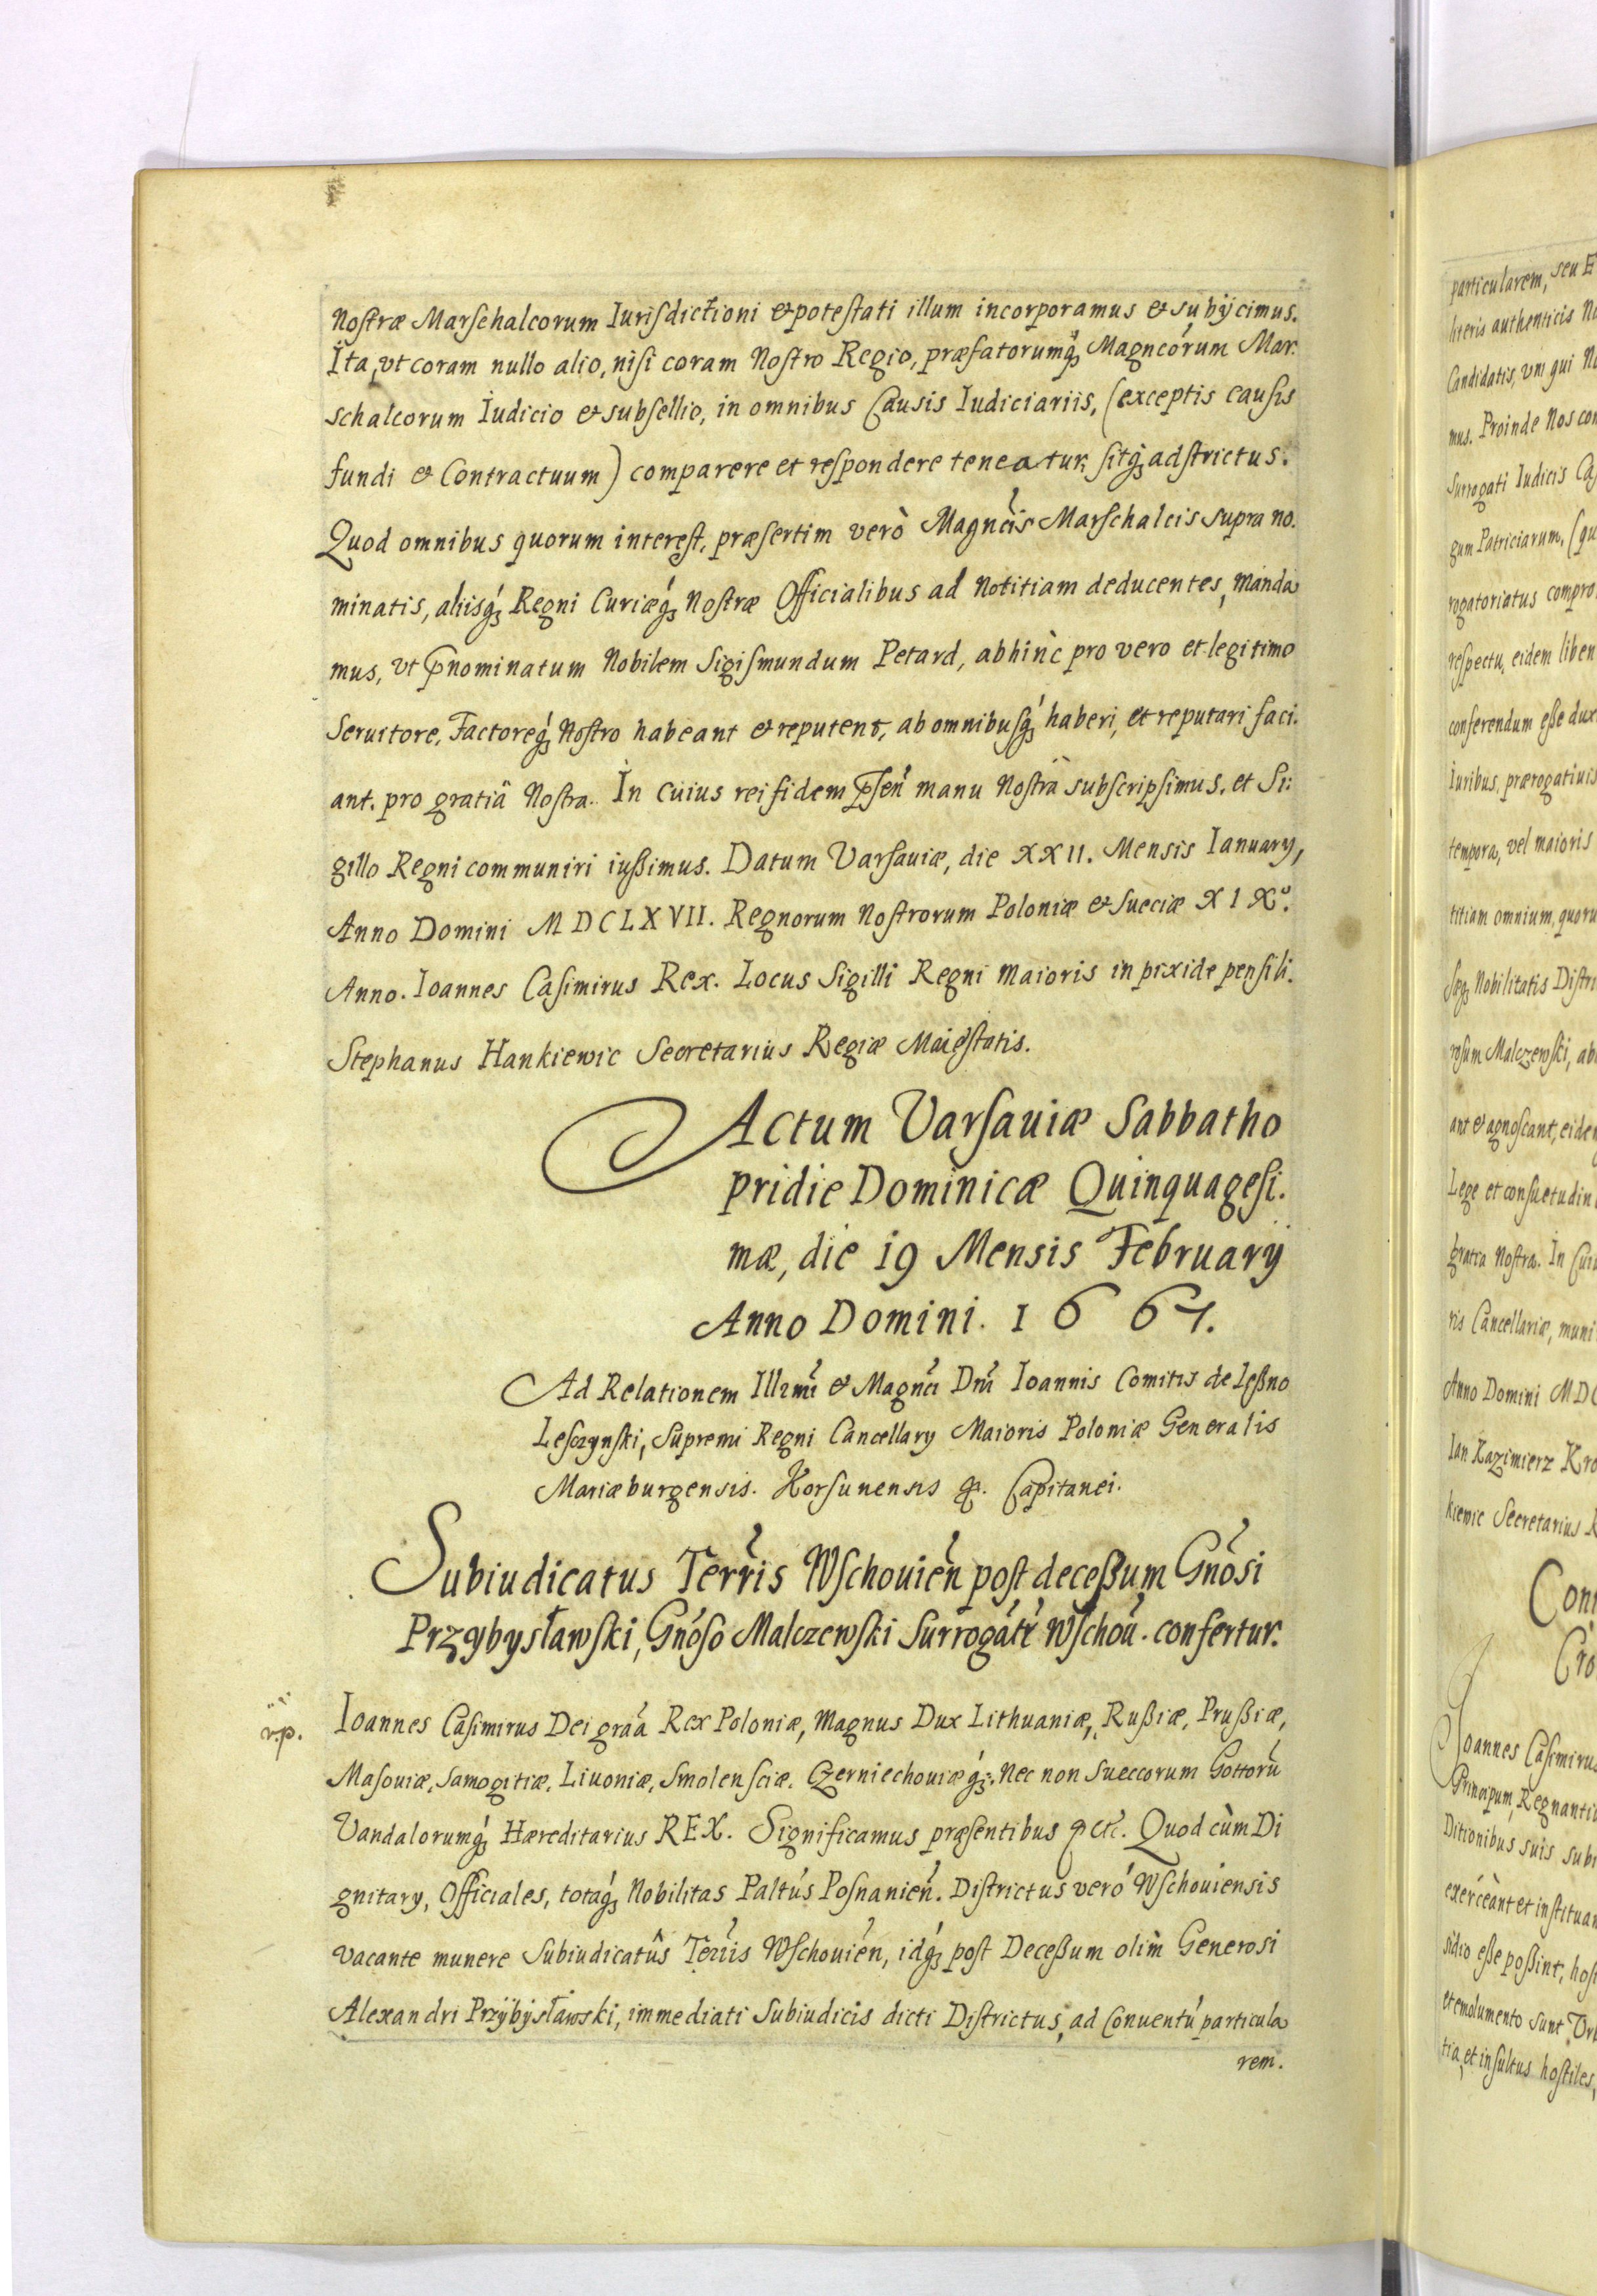 Nostræ Marschalcorum Iurisdictioni et potestati illum incorporamus et subijcimus.
Ita, vt coram nullo alio, nisi coram Nostro Regio, præfatorumq́ꝫ Magncórum Mar:
schalcorum Iudicio et subsellio, in omnibus Causis Iudiciariis, (exceptis causis
fundi et Contractuum) comparere et respondere teneatur, sitq́ꝫ adstrictus.
Quod omnibus quorum interest, præsertim verò Magncis Marschalcis supra no.
minatis, aliisq́ꝫ Regni Curiæq́ꝫ Nostræ Officialibus ad Notitiam deducentes, manda
mus, vt p̄nominatum Nobilem Sigismundum Petard, abhinc pro vero et legitimo
Seruitore, Factoreq́ꝫ Nostro habeant et reputent, ab omnibusq́ꝫ haberi, et reputari faci.
ant. pro gratiâ Nostra. In cuius rei fidem p̄sen̄ manu Nostrâ subscripsimus. et Si:
gillo Regni communiri iußimus. Datum Varsauiæ, die XXII. Mensis Ianuary,
Anno Domini MDCLXVII. Regnorum Nostrorum Poloniæ et Sueciæ XIXº.
Anno. Ioannes Casimirus Rex. Locus Sigilli Regni Maioris in pixide pensili.
Stephanus Hankiewic Secretarius Regiæ Maiestatis.
Actum Varsauiæ Sabbatho
pridie Dominicæ Quinquagesi.
mæ, die 19 Mensis February
Anno Domini. 1667.
Ad Relationem Illrmi et Magnci Dni Ioannis Comitis de Leßno
Lesczynski, Supremi Regni Cancellary Maioris Poloniæ Generalis
Mariæburgensis. Korsunensis &. Capitanei.
Subiudicatus Terris Wschouien̄ post deceßum Gnosi
Przybysławski, Gnóso Malczewski Surrogáti Wschou. confertur.
v.p.
Ioannes Casimirus Dei graa Rex Poloniæ, Magnus Dux Lithuaniæ, Rußiæ, Prußiæ,
Masouiæ, Samogitiæ, Liuoniæ, Smolensciæ. Czerniechouiæq́ꝫ. Nec non Sueccorum Gottorū
Vandalorumq́ꝫ Hæreditarius REX. Significamus præsentibus &c. Quod cùm Di
gnitary, Officiales, totaq́ꝫ Nobilitas Paltús Posnanien̄. Districtus veró Wschouiensis
vacante munere Subiudicatûs Terris Wschouien̄, idq́ꝫ post Deceßum olim Generosi
Alexandri Przÿbysławski, immediati Subiudicis dicti Districtus, ad Conuentú particula
rem.
particularem, seu
literis authenticis
Candidatis, vni qui
mus. Proinde Nos
Surrogati Iudicis
gum Patriciarum,
rogatoriatus
respectu, eidem
conferendum eße
Iuribus, prærogatiuis
tempora, vel maioris
titiam omnium,
Nobilitatis
Malczewski,
ant et agnoscant,
Lege et
gratia Nostra. In
ris Cancellariæ,
Anno Domini
Ian Kazimierz
kiewic Secretarius
Ioannes
Principum,
Ditionibus suis
exerceant et
sidio eße poßint,
et emolumento sunt
tia, et insultus hostiles,